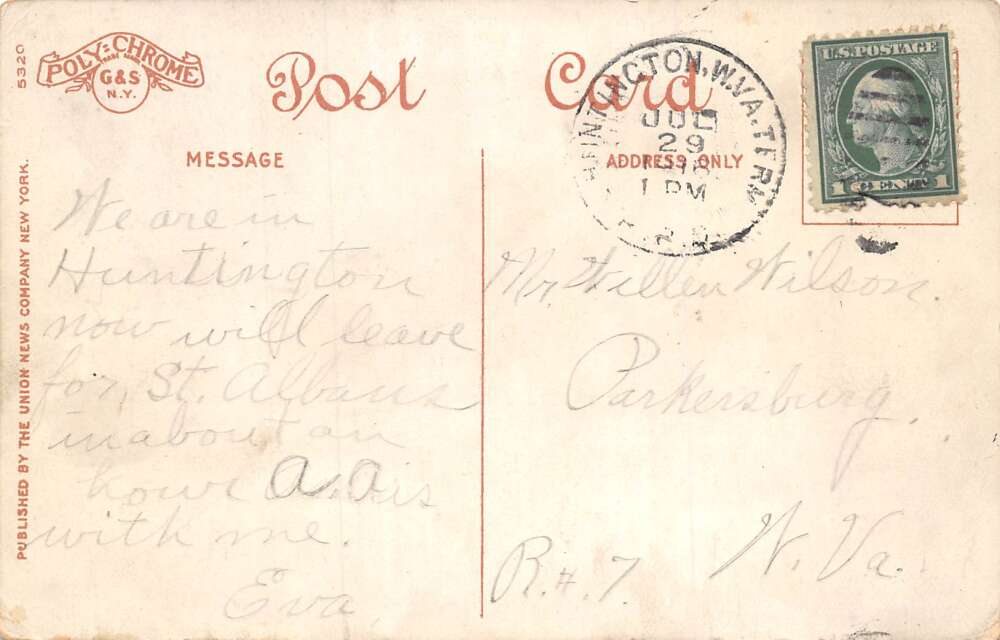 5320
POLY-CHROME
G&S
N.Y.
Post Card
MESSAGE
ADDRESS ONLY
PUBLISHED BY THE UNION NEWS COMPANY NEW YORK.
HUNTINGTON, W.VA. TERM.
JUL
29
1 PM
R.P.O.
U.S. POSTAGE
1 CENT 1
We are in
Huntington
now will leave
for St. Albans
in about an
hour A. A. is
with me.
Eva
Mr. Willen Wilson.
Parkersburg,
W. Va.
R.#.7